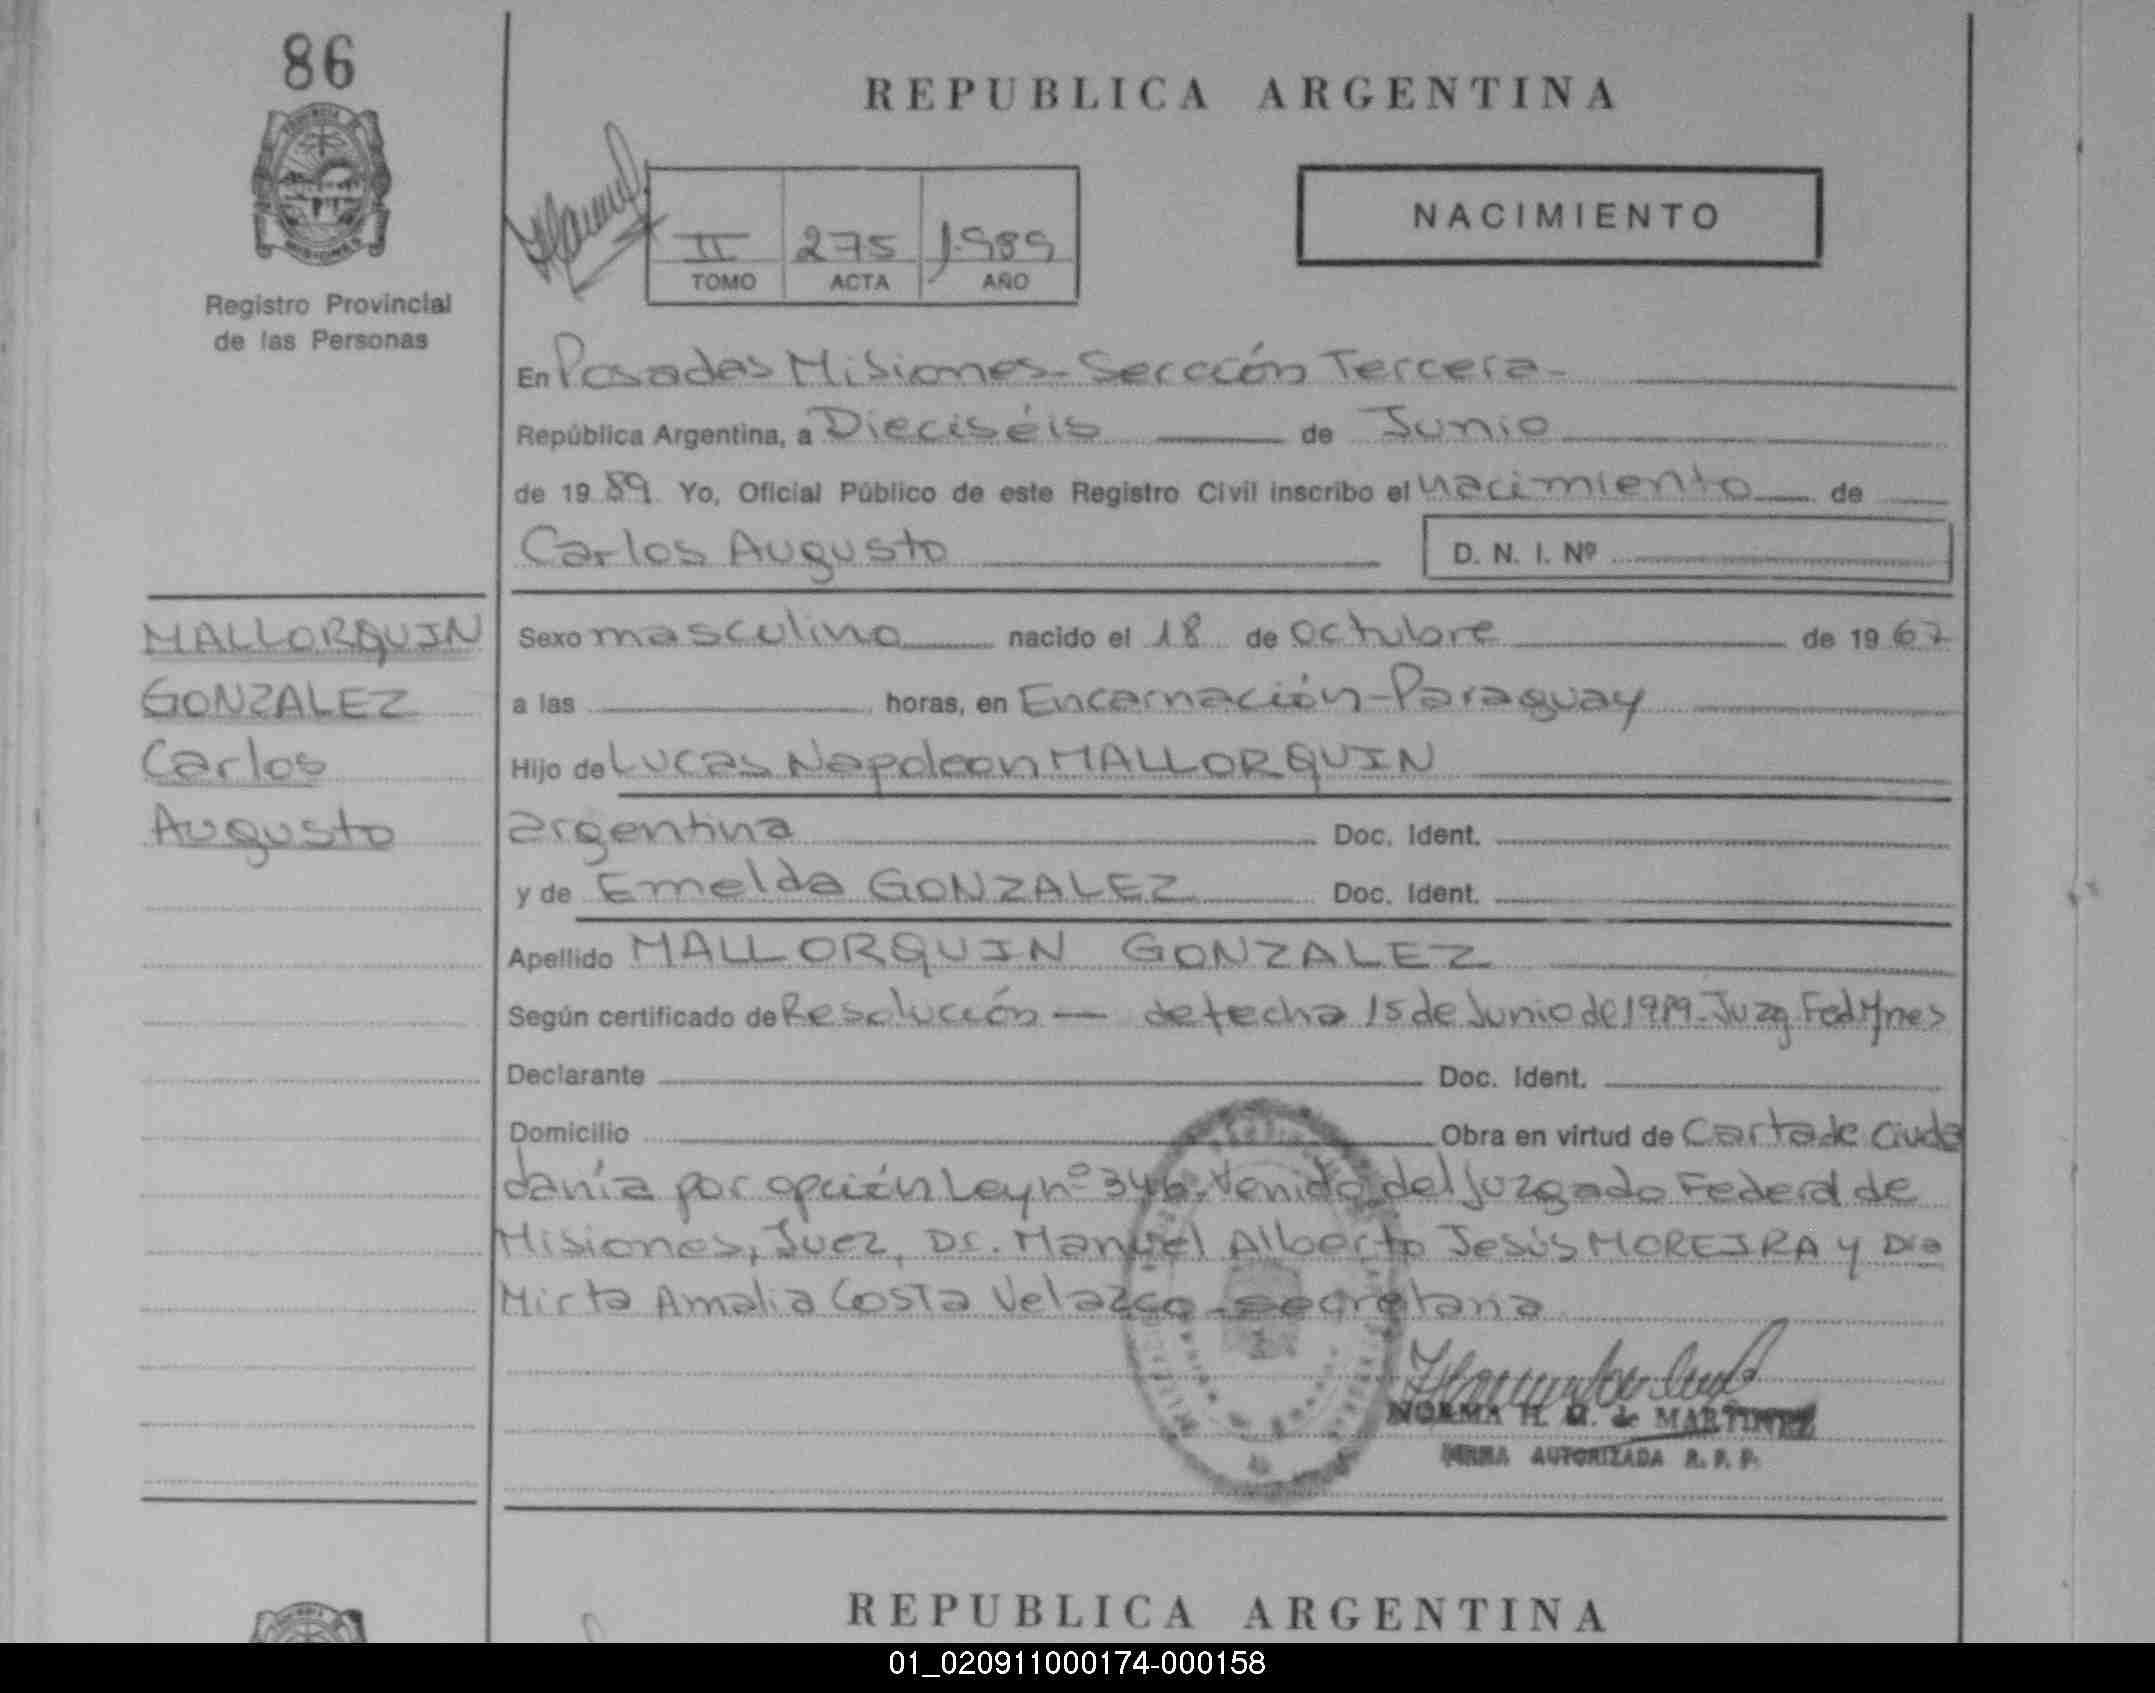 86
REPUBLICA ARGENTINA
II 275 1.989
TOMO ACTA AÑO
NACIMIENTO
Registro Provincial
de las Personas
En Posadas Misiones - Sección Tercera -
República Argentina, a Dieciséis de Junio
de 1989. Yo, Oficial Público de este Registro Civil inscribo el nacimiento de
Carlos Augusto D. N. I. Nº
MALLORQUIN
GONZALEZ
Carlos
Augusto
Sexo masculino nacido el 18 de octubre de 1967
a las horas, en Encarnación - Paraguay
Hijo de Lucas Napoleon MALLORQUIN
argentina Doc. Ident.
y de Emelda GONZALEZ Doc. Ident.
Apellido MALLORQUIN GONZALEZ
Según certificado de Resolución — de fecha 15 de Junio de 1989 - Juzg Fed Mnes
Declarante Doc. Ident.
Domicilio Obra en virtud de Carta de Ciuda
danía por opción Ley nº 346. Venido del Juzgado Federal de
Misiones, Juez, Dr. Manuel Alberto Jesús MOREIRA y Dra
Mirta Amalia Costa Velazco - secretaria
NORMA H. M. de MARTINEZ
FIRMA AUTORIZADA R. P. P.
REPUBLICA ARGENTINA
01_020911000174-000158